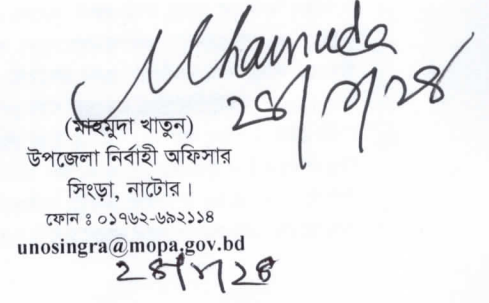 Mhamuda
২৪/৭/২৪
(মাহমুদা খাতুন)
উপজেলা নির্বাহী অফিসার
সিংড়া, নাটোর।
ফোন ঃ ০১৭৬২-৬৯২১১৪
unosingra@mopa.gov.bd
২৪/৭/২৪